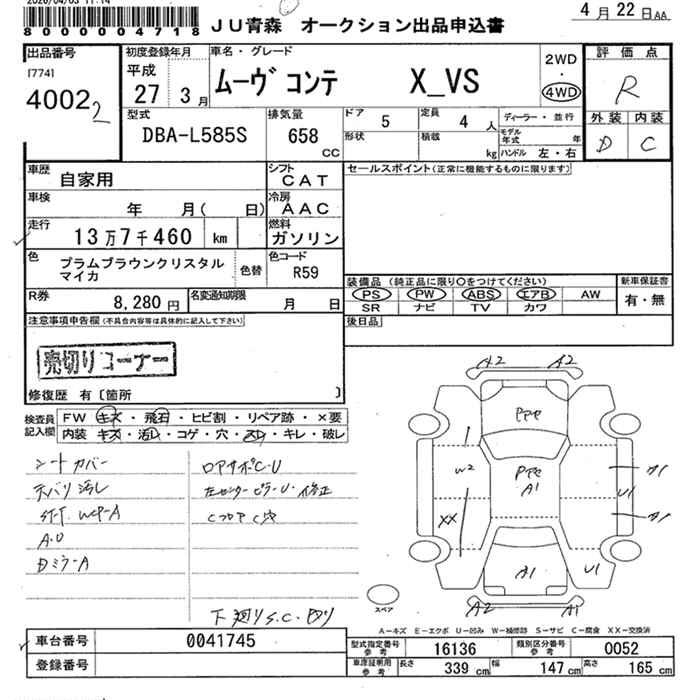 2026/04/03 11:14
8000004718
JU青森 オークション出品申込書
4月22日AA
出品番号
[774]
4002
2
初度登録年月
平成
27 3月
車名・グレード
ムーヴ コンテ X_VS
2WD
・
4WD
評価点
R
外装 内装
D C
型式
DBA-L585S
排気量
658
CC
ドア 5
定員 4 人
形状
積載 kg
ディーラー・並行
モデル年式 年
ハンドル 左・右
車歴
自家用
シフト
CAT
車検
年 月( 日)
冷房
AAC
走行
13万7千460 km
燃料
ガソリン
セールスポイント(正常に機能するものに限ります)
色
プラムブラウンクリスタル
マイカ
色替
色コード
R59
R券
8,280円
名変通知期限
月 日
装備品(純正品に限り○をつけてください)
PS PW ABS エアB AW
SR ナビ TV カワ
新車保証書
有・無
後日品
注意事項申告欄(不具合内容等は具体的に記入して下さい)
売切りコーナー
修復歴 有〔箇所 〕
検査員
記入欄
FW キズ・飛石・ヒビ割・リペア跡・×要
内装 キズ・汚レ・コゲ・穴・スレ・キレ・破レ
シートカバー
天バリ汚レ
A.U
ロアサポC.U
左センターピラーU・修正
CフロアC穴
下廻りS.C・
A2 A2
W2
A1
XX
A1
U1
A1
A1
U1
A2
A1
スペア
A-キズ E-エクボ U-凹み W-補修跡 S-サビ C-腐食 XX-交換済
車台番号
0041745
登録番号
型式指定番号
参考
16136
類別区分番号
参考
0052
車庫証明用
参考
長さ 339cm
幅 147cm
高さ 165cm